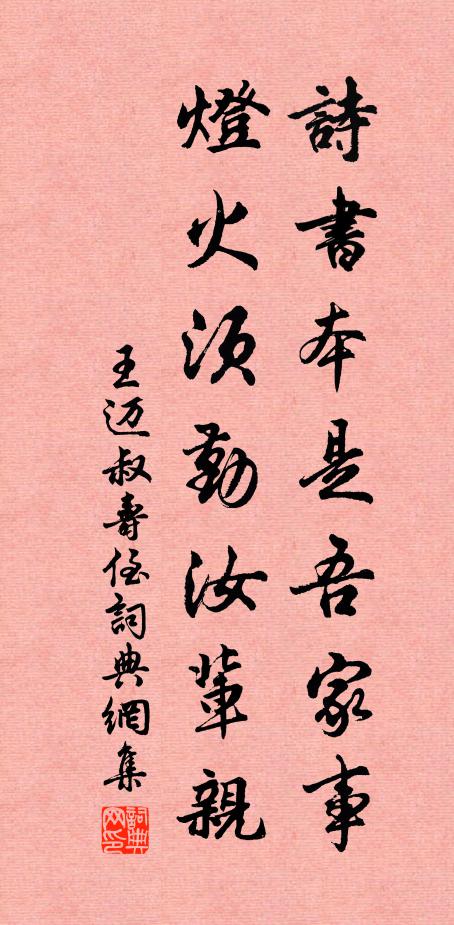 詩書本是吾家事
燈火須勤汝輩親
王迈叔壽侄詞典網集
詞典网印